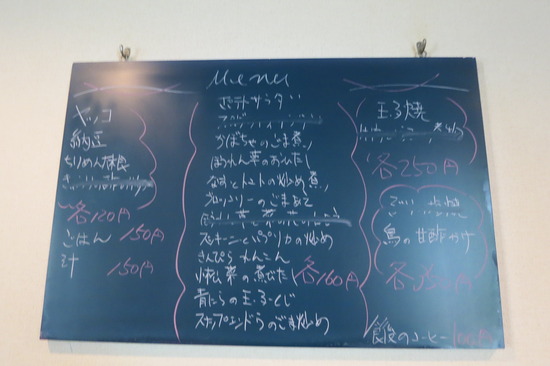 Menu
ヤッコ
納豆
ちりめん大根
各120円
ごはん 150円
汁 150円
ポテトサラダ
かぼちゃのごま煮
ほうれん草のおひたし
なすとトマトの炒め煮
ブロッコリーのごまあえ
ズッキーニとパプリカの炒め
きんぴられんこん
小松菜の煮びたし
各160円
青にらの玉子とじ
スナップエンドウのごま炒め
玉子焼
各250円
鳥の甘酢かけ
各350円
食後のコーヒー